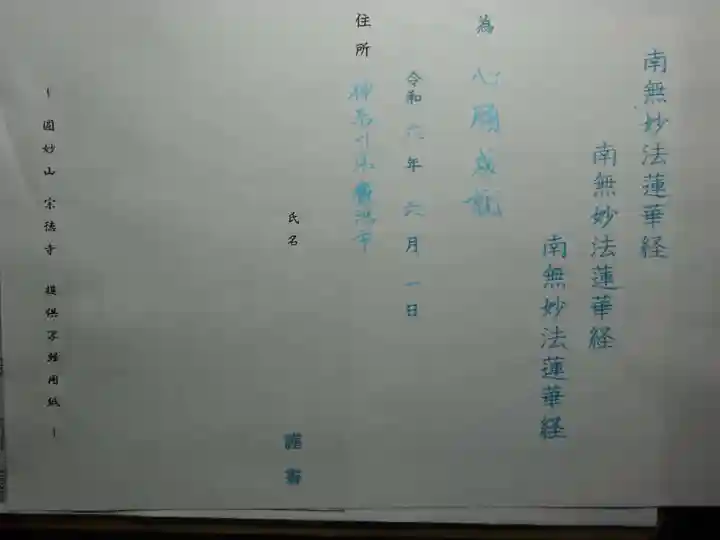 南無妙法蓮華経
南無妙法蓮華経
南無妙法蓮華経
為 心願成就
令和 六年 六月 一日
住所 神奈川県横浜市
氏名
謹寫
~ 圓妙山 宗徳寺 提供写経用紙 ~